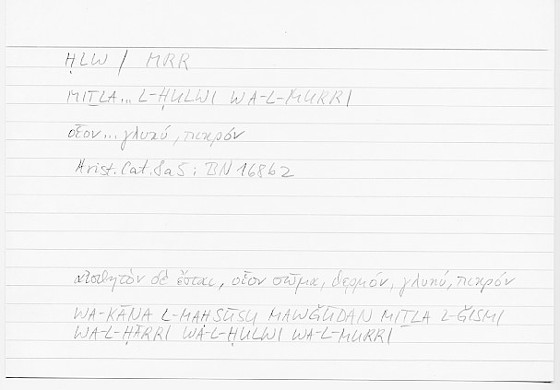 ḤLW / MRR
MIṮLA... L-ḤULWI WA-L-MURRI
οἷον... γλυκύ, πικρόν
Arist. Cat. 8a5; BN 168b2
αἰσθητὸν δὲ ἔσται, οἷον σῶμα, θερμόν, γλυκύ, πικρόν
WA-KĀNA L-MAḤSŪSU MAWǦŪDAN MIṮLA L-ǦISMI
WA-L-ḤĀRRI WA-L-ḤULWI WA-L-MURRI